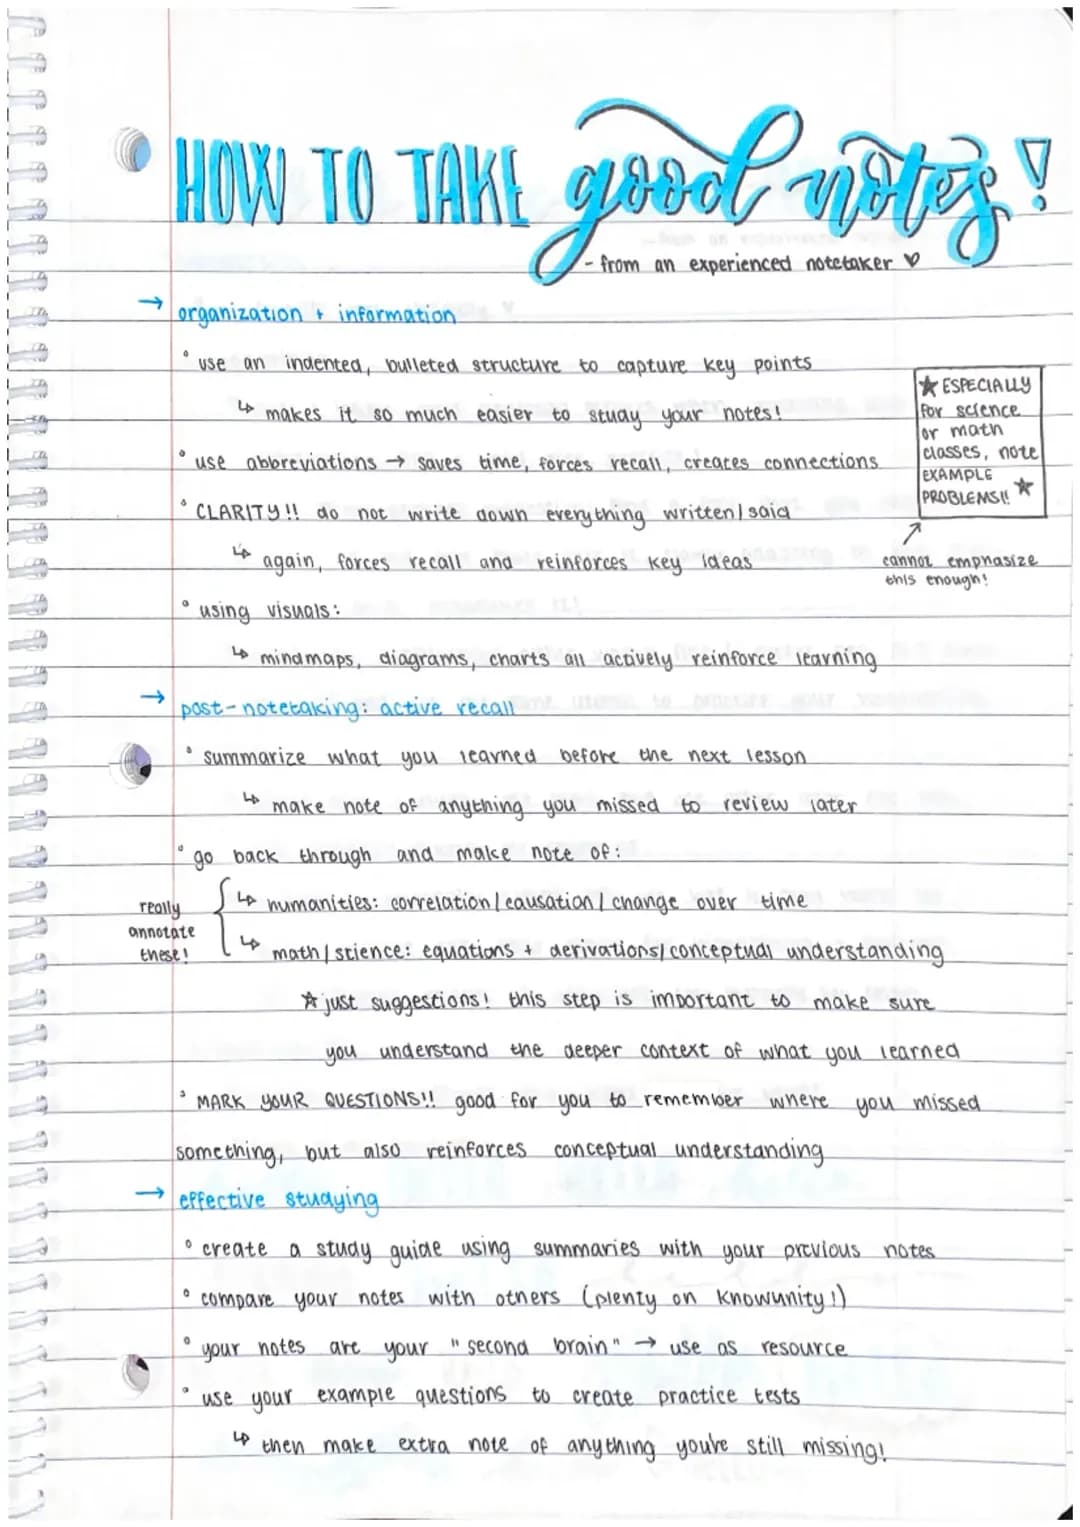 HOW TO TAKE good notes!
- from an experienced notetaker ♡
→ organization + information
° use an indented, bulleted structure to capture key points
↳ makes it so much easier to study your notes!
★ ESPECIALLY
for science
or math
classes, note
EXAMPLE
PROBLEMS!! ★
cannot emphasize
this enough!
° use abbreviations → saves time, forces recall, creates connections
° CLARITY!! do not write down everything written/said
↳ again, forces recall and reinforces key ideas
° using visuals:
↳ mindmaps, diagrams, charts all actively reinforce learning
→ post-notetaking: active recall
° summarize what you learned before the next lesson
↳ make note of anything you missed to review later
° go back through and make note of:
really
annotate
these!
↳ humanities: correlation/causation/change over time
↳ math/science: equations + derivations/conceptual understanding
☆ just suggestions! this step is important to make sure
you understand the deeper context of what you learned
° MARK YOUR QUESTIONS!! good for you to remember where you missed
something, but also reinforces conceptual understanding
→ effective studying
° create a study guide using summaries with your previous notes
° compare your notes with others (plenty on Knowunity!)
° your notes are your "second brain" → use as resource
° use your example questions to create practice tests
↳ then make extra note of anything you're still missing!